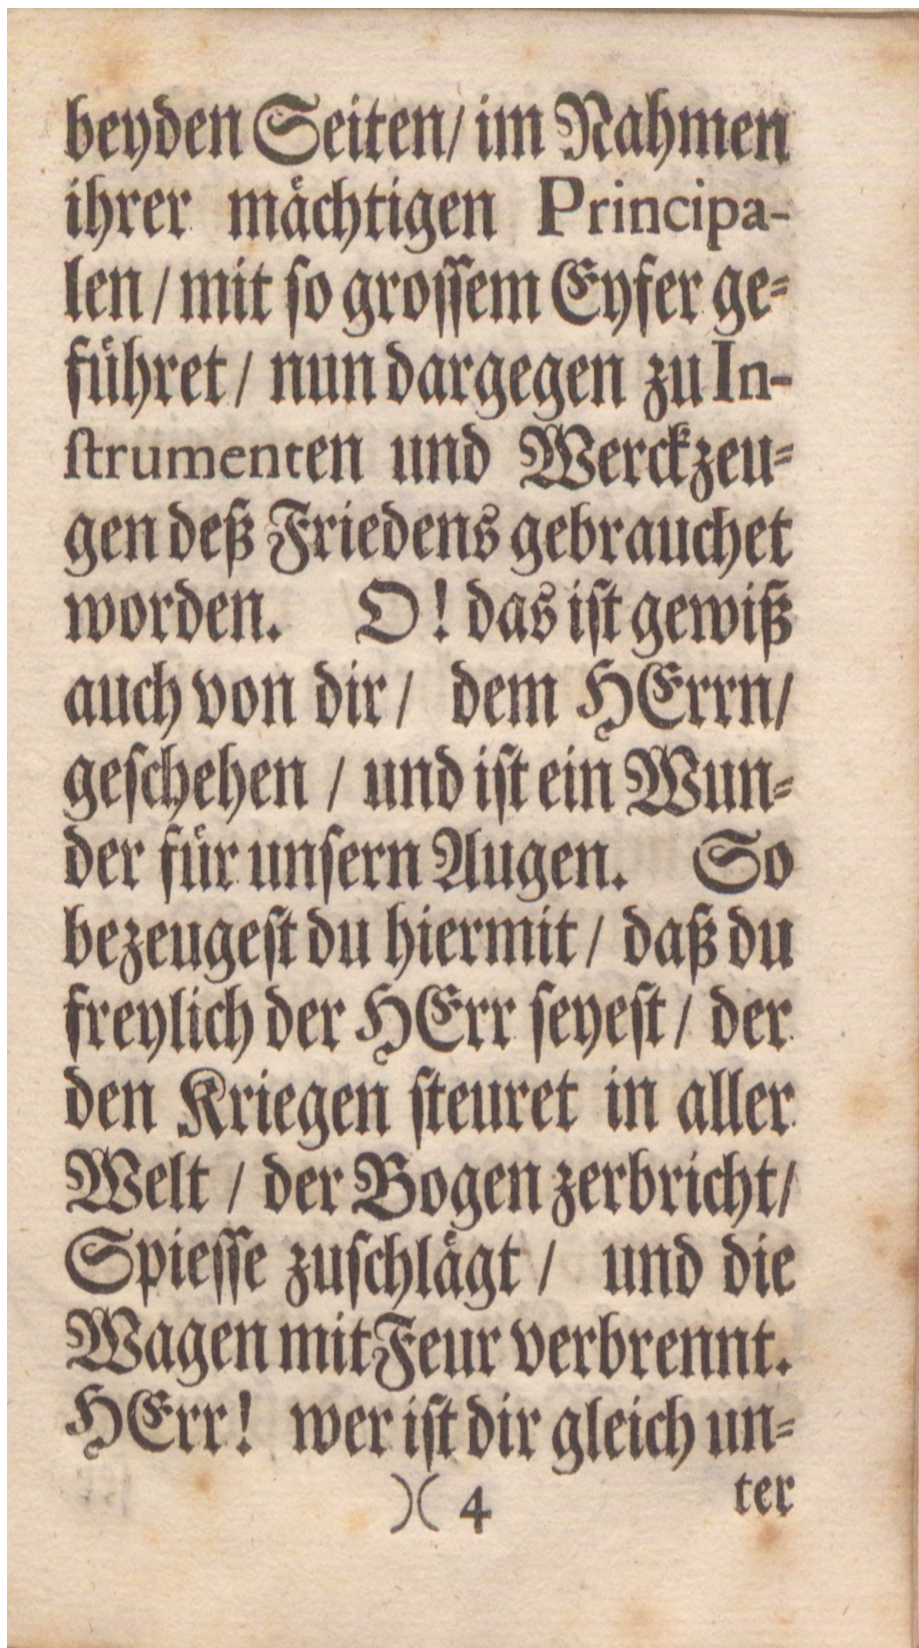 beyden Seiten/ im Nahmen
ihrer mächtigen Principa-
len / mit so grossem Eyfer ge-
führet / nun dargegen zu In-
strumenten und Werckzeu-
gen deß Friedens gebrauchet
worden. O! das ist gewiß
auch von dir / dem HErrn/
geschehen / und ist ein Wun-
der für unsern Augen. So
bezeugest du hiermit / daß du
freylich der HErr seyest / der
den Kriegen steuret in aller
Welt / der Bogen zerbricht/
Spiesse zuschlägt / und die
Wagen mit Feur verbrennt.
HErr! wer ist dir gleich un-
)( 4 ter